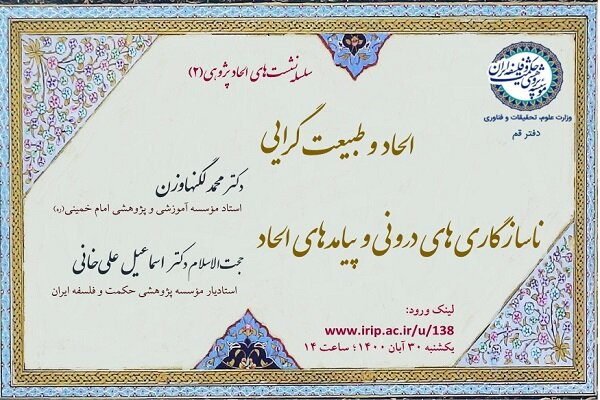 سلسله نشست‌های الحاد پژوهی (۲)
مؤسسه پژوهشی حکمت و فلسفه ایران
وزارت علوم، تحقیقات و فناوری
دفتر قم
الحاد و طبیعت گرایی
دکتر محمد لگنهاوزن
استاد مؤسسه آموزشی و پژوهشی امام خمینی (ره)
ناسازگاری های درونی و پیامدهای الحاد
حجت الاسلام دکتر اسماعیل علی خانی
استادیار مؤسسه پژوهشی حکمت و فلسفه ایران
لینک ورود:
www.irip.ac.ir/u/138
یکشنبه ۳۰ آبان ۱۴۰۰؛ ساعت ۱۴